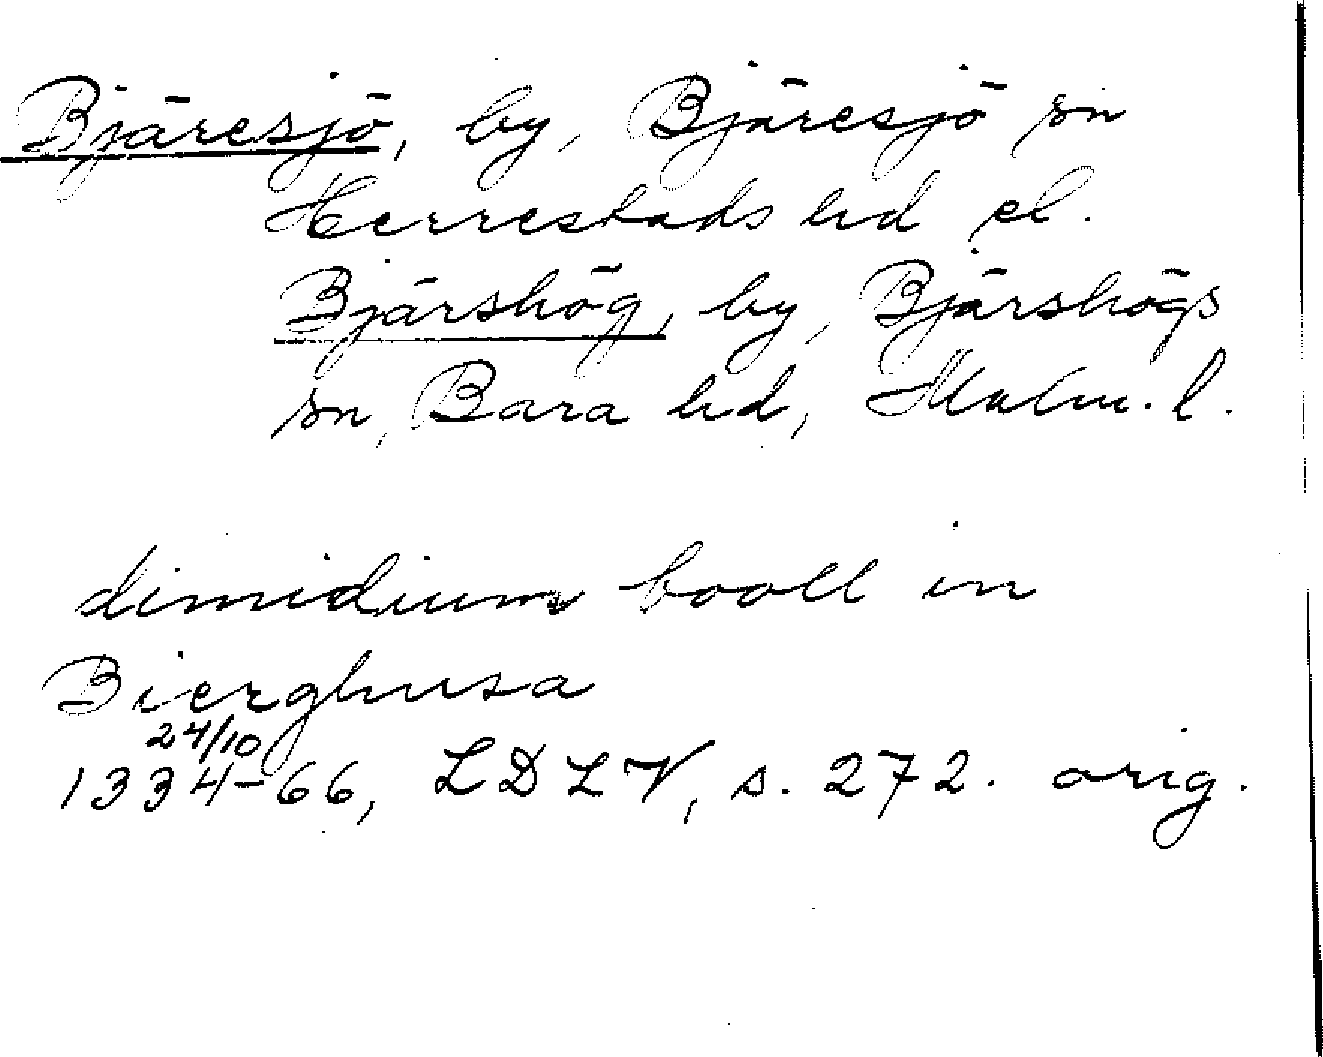 Bjäresjö, by, Bjäresjö sn
Herrestads hd el.
Bjärshög, by, Bjärshögs
sn, Bara hd, Malm. l.
dimidium booll in
Bierghusa
24/10
1334-66, LDLV, s. 272. orig.